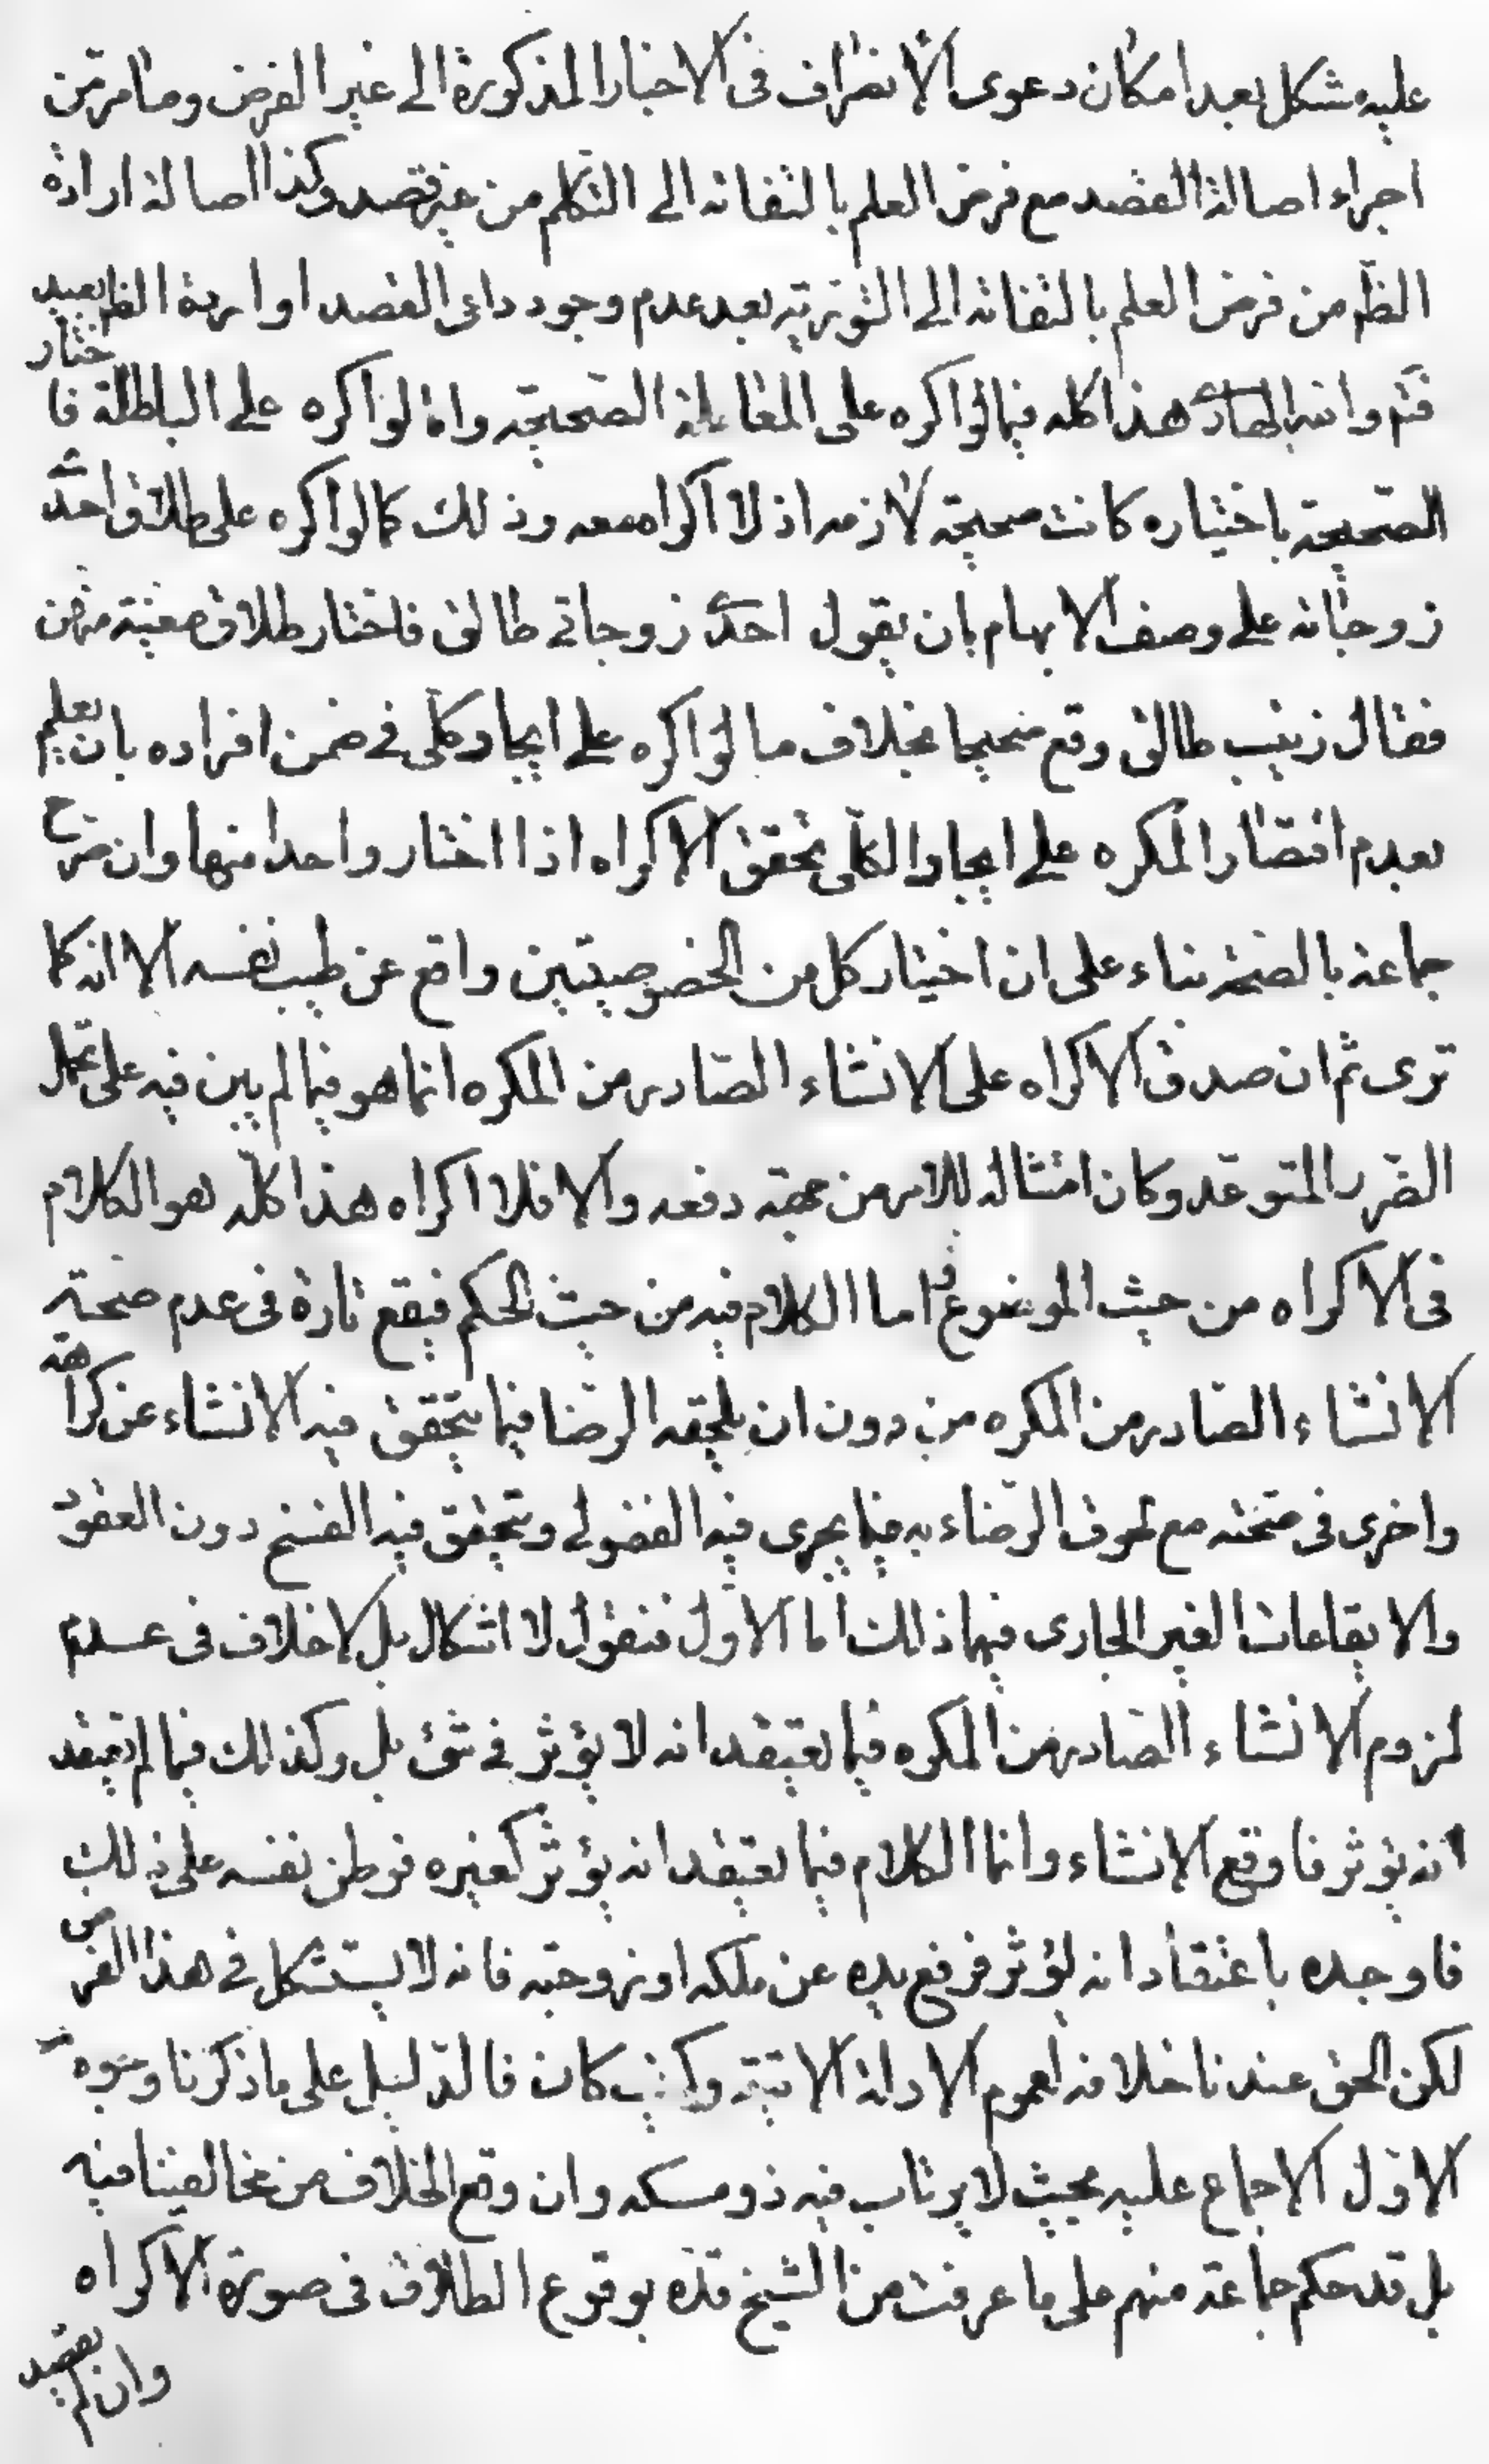 عليه مشكل بعد امكان دعوى الانصراف فى الاخبار المذكورة الى غير الفرض وما مر من
اجراء اصالة القصد مع فرض العلم بالتفاته الى التكلم من غير قصد وكذا اصالة ارادة
الظم من فرض العلم بالتفاته الى التورية بعد عدم وجود داعى القصد او اردة الظم بعيد
فتم والله الهادى هذا كله فيما لو اكره على المعاملة الصحيحة واما لو اكره على الباطلة فاختار
الصحيحة باختياره كانت صحيحة لازمه اذ لا اكراه معه وذلك كما لو اكره على طلاق احدى
زوجاته على وصف الابهام بان يقول احدى زوجاتى طالق فاختار طلاق معينة منهن
فقال زينب طالق وقع صحيحا بخلاف ما لو اكره على ايجاد كلى فى ضمن افراده بان يعلم
بعدم اقتصار المكره على ايجاد الكلى تحقق الاكراه اذا اختار واحدا منها وان صرح
جماعة بالصحة بناء على ان اختيار كل من الخصوصيتين واقع عن طيب نفسه الا انه كما
ترى ثم ان صدق الاكراه على الانشاء الصادر من المكره انما هو فيما لم يبن فيه على تحمل
الضرر المتوعد وكان امتثاله للامر من جهة دفعه والا فلا اكراه هذا كله هو الكلام
فى الاكراه من حيث الموضوع واما الكلام فيه من حيث الحكم فيقع تارة فى عدم صحة
الانشاء الصادر من المكره من دون ان يلحقه الرضا فيما يتحقق فيه الانشاء عن كراهة
واخرى فى صحته مع لحوق الرضاء به فيما يجرى فيه الفضولى ويتحقق فيه الفسخ دون العقود
والايقاعات الغير الجارى فيها ذلك اما الاول فنقول لا اشكال بل لا خلاف فى عدم
لزوم الانشاء الصادر من المكره فيما يعتقد انه لا يؤثر فى شئ بل وكذلك فيما لم يعتقد
انه يؤثر فاوقع الانشاء وانما الكلام فيما يعتقد انه يؤثر كغيره فوطن نفسه على ذلك
فاوجده باعتقاد انه يؤثر فرفع يده عن ملكه او زوجته فانه لا يستشكل فى هذا الفرض
لكن الحق عندنا خلافه لعموم الادلة الاتية وكيف كان فالدليل على ما ذكرنا وجوه
الاول الاجماع عليه بحيث لا يرتاب فيه ذو مسكه وان وقع الخلاف من مخالفينا فيه
بل قد حكم جماعة منهم على ما عرفت من الشيخ قده بوقوع الطلاق فى صورة الاكراه
وان لم يعتقد